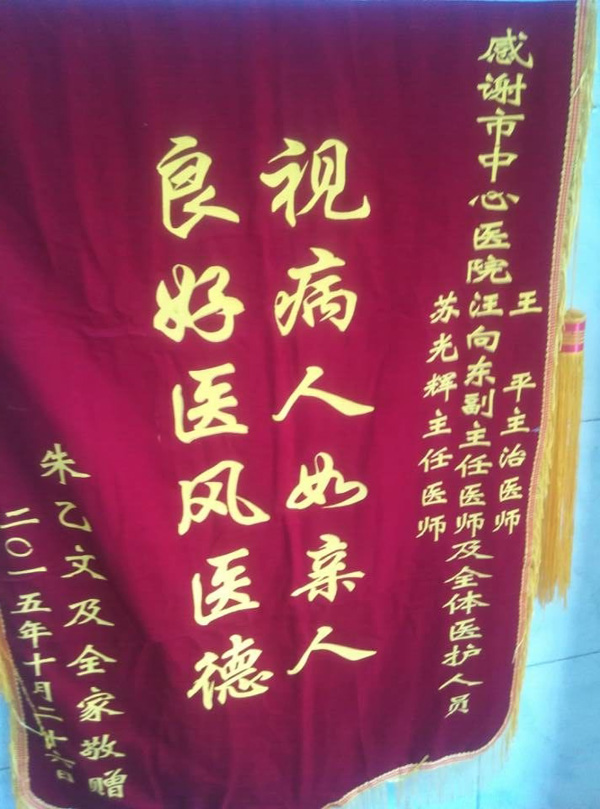 感谢市中心医院
王平主治医师
汪向东副主任医师
苏光辉主任医师
及全体医护人员
视病人如亲人
良好医风医德
朱乙文及全家敬赠
二〇一五年十月二廿六日